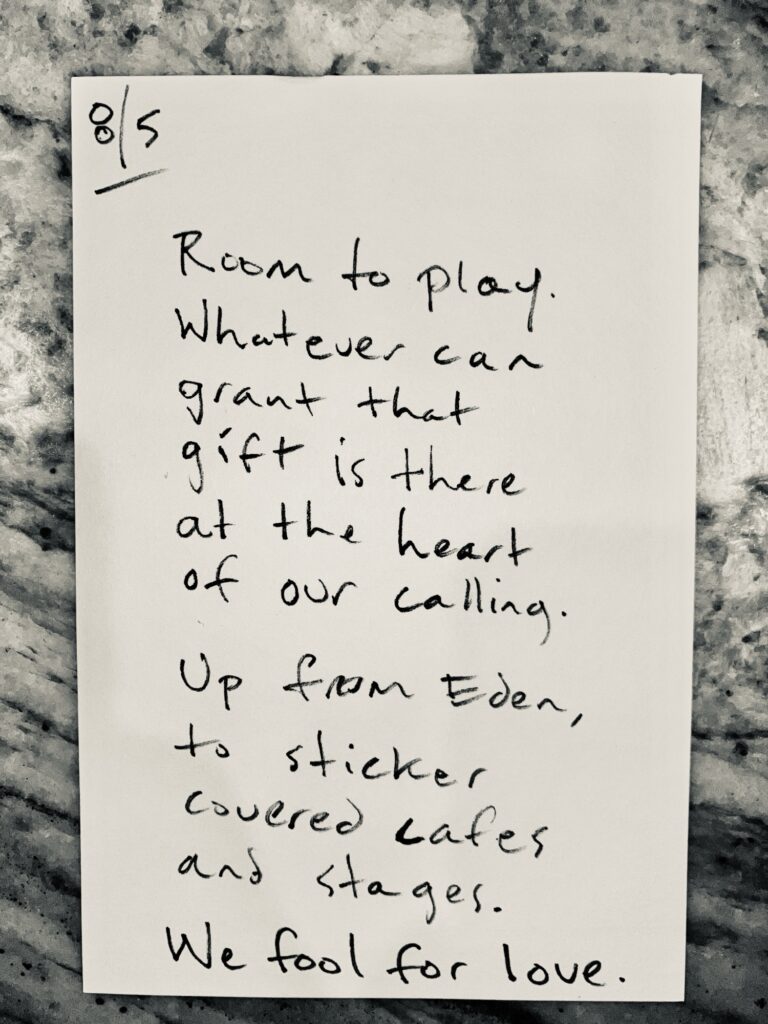 8/5
Room to play.
Whatever can
grant that
gift is there
at the heart
of our calling.
Up from Eden,
to sticker
covered cafes
and stages.
We fool for love.